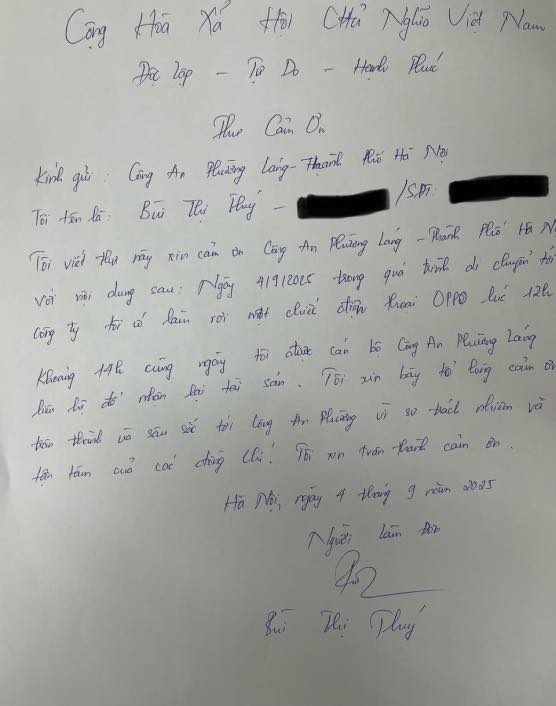 Cộng Hoà Xã Hội Chủ Nghĩa Việt Nam
Độc lập - Tự Do - Hạnh Phúc
Thư Cảm Ơn
Kính gửi: Công An Phường Láng - Thành Phố Hà Nội
Tôi tên là: Bùi Thị Thuý - /SĐT:
Tôi viết thư này xin cảm ơn Công An Phường Láng - Thành Phố Hà Nội
Với nội dung sau: Ngày 4/9/2025 trong quá trình di chuyển tới
công ty tôi có làm rơi một chiếc điện thoại OPPO lúc 12h
Khoảng 14h cùng ngày tôi được cán bộ Công An Phường Láng
liên hệ để nhận lại tài sản. Tôi xin bày tỏ lòng cảm ơn
trân thành và sâu sắc tới Công An Phường vì sự trách nhiệm và
tận tâm của các đồng chí! Tôi xin trân thành cảm ơn.
Hà Nội, ngày 4 tháng 9 năm 2025
Người làm đơn
Bùi Thị Thuý